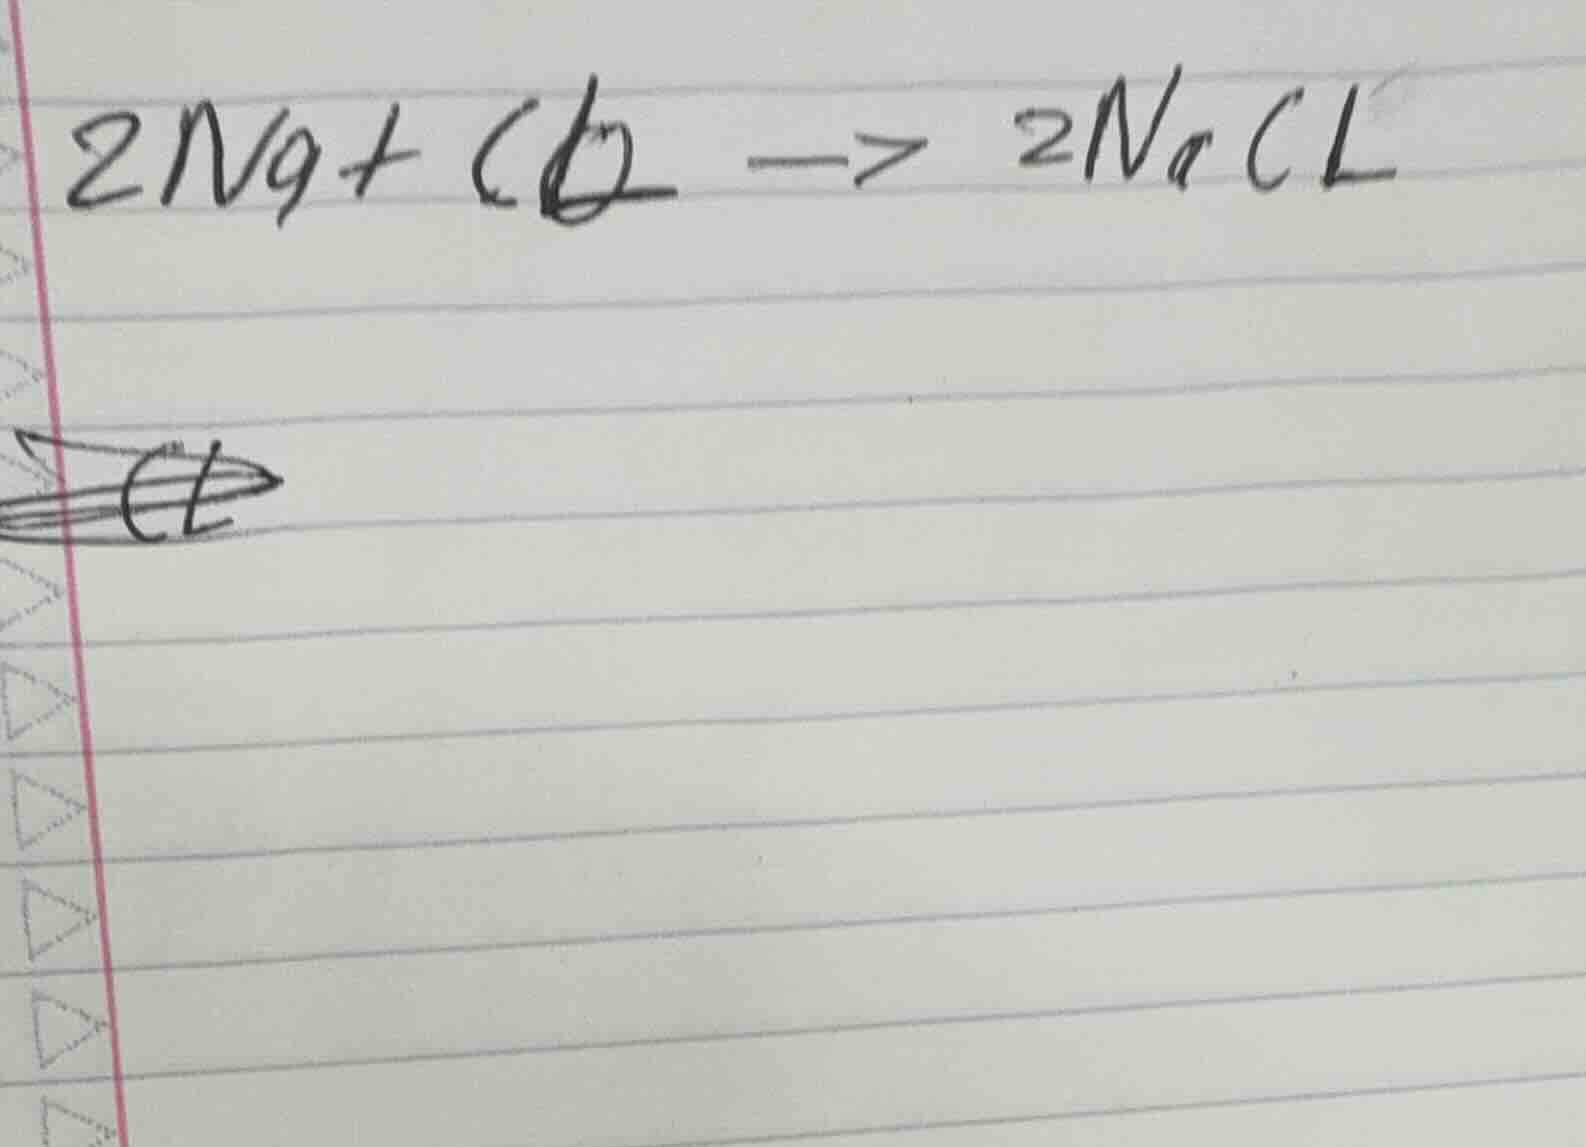 2Na + CL2 -> 2NaCL
CL